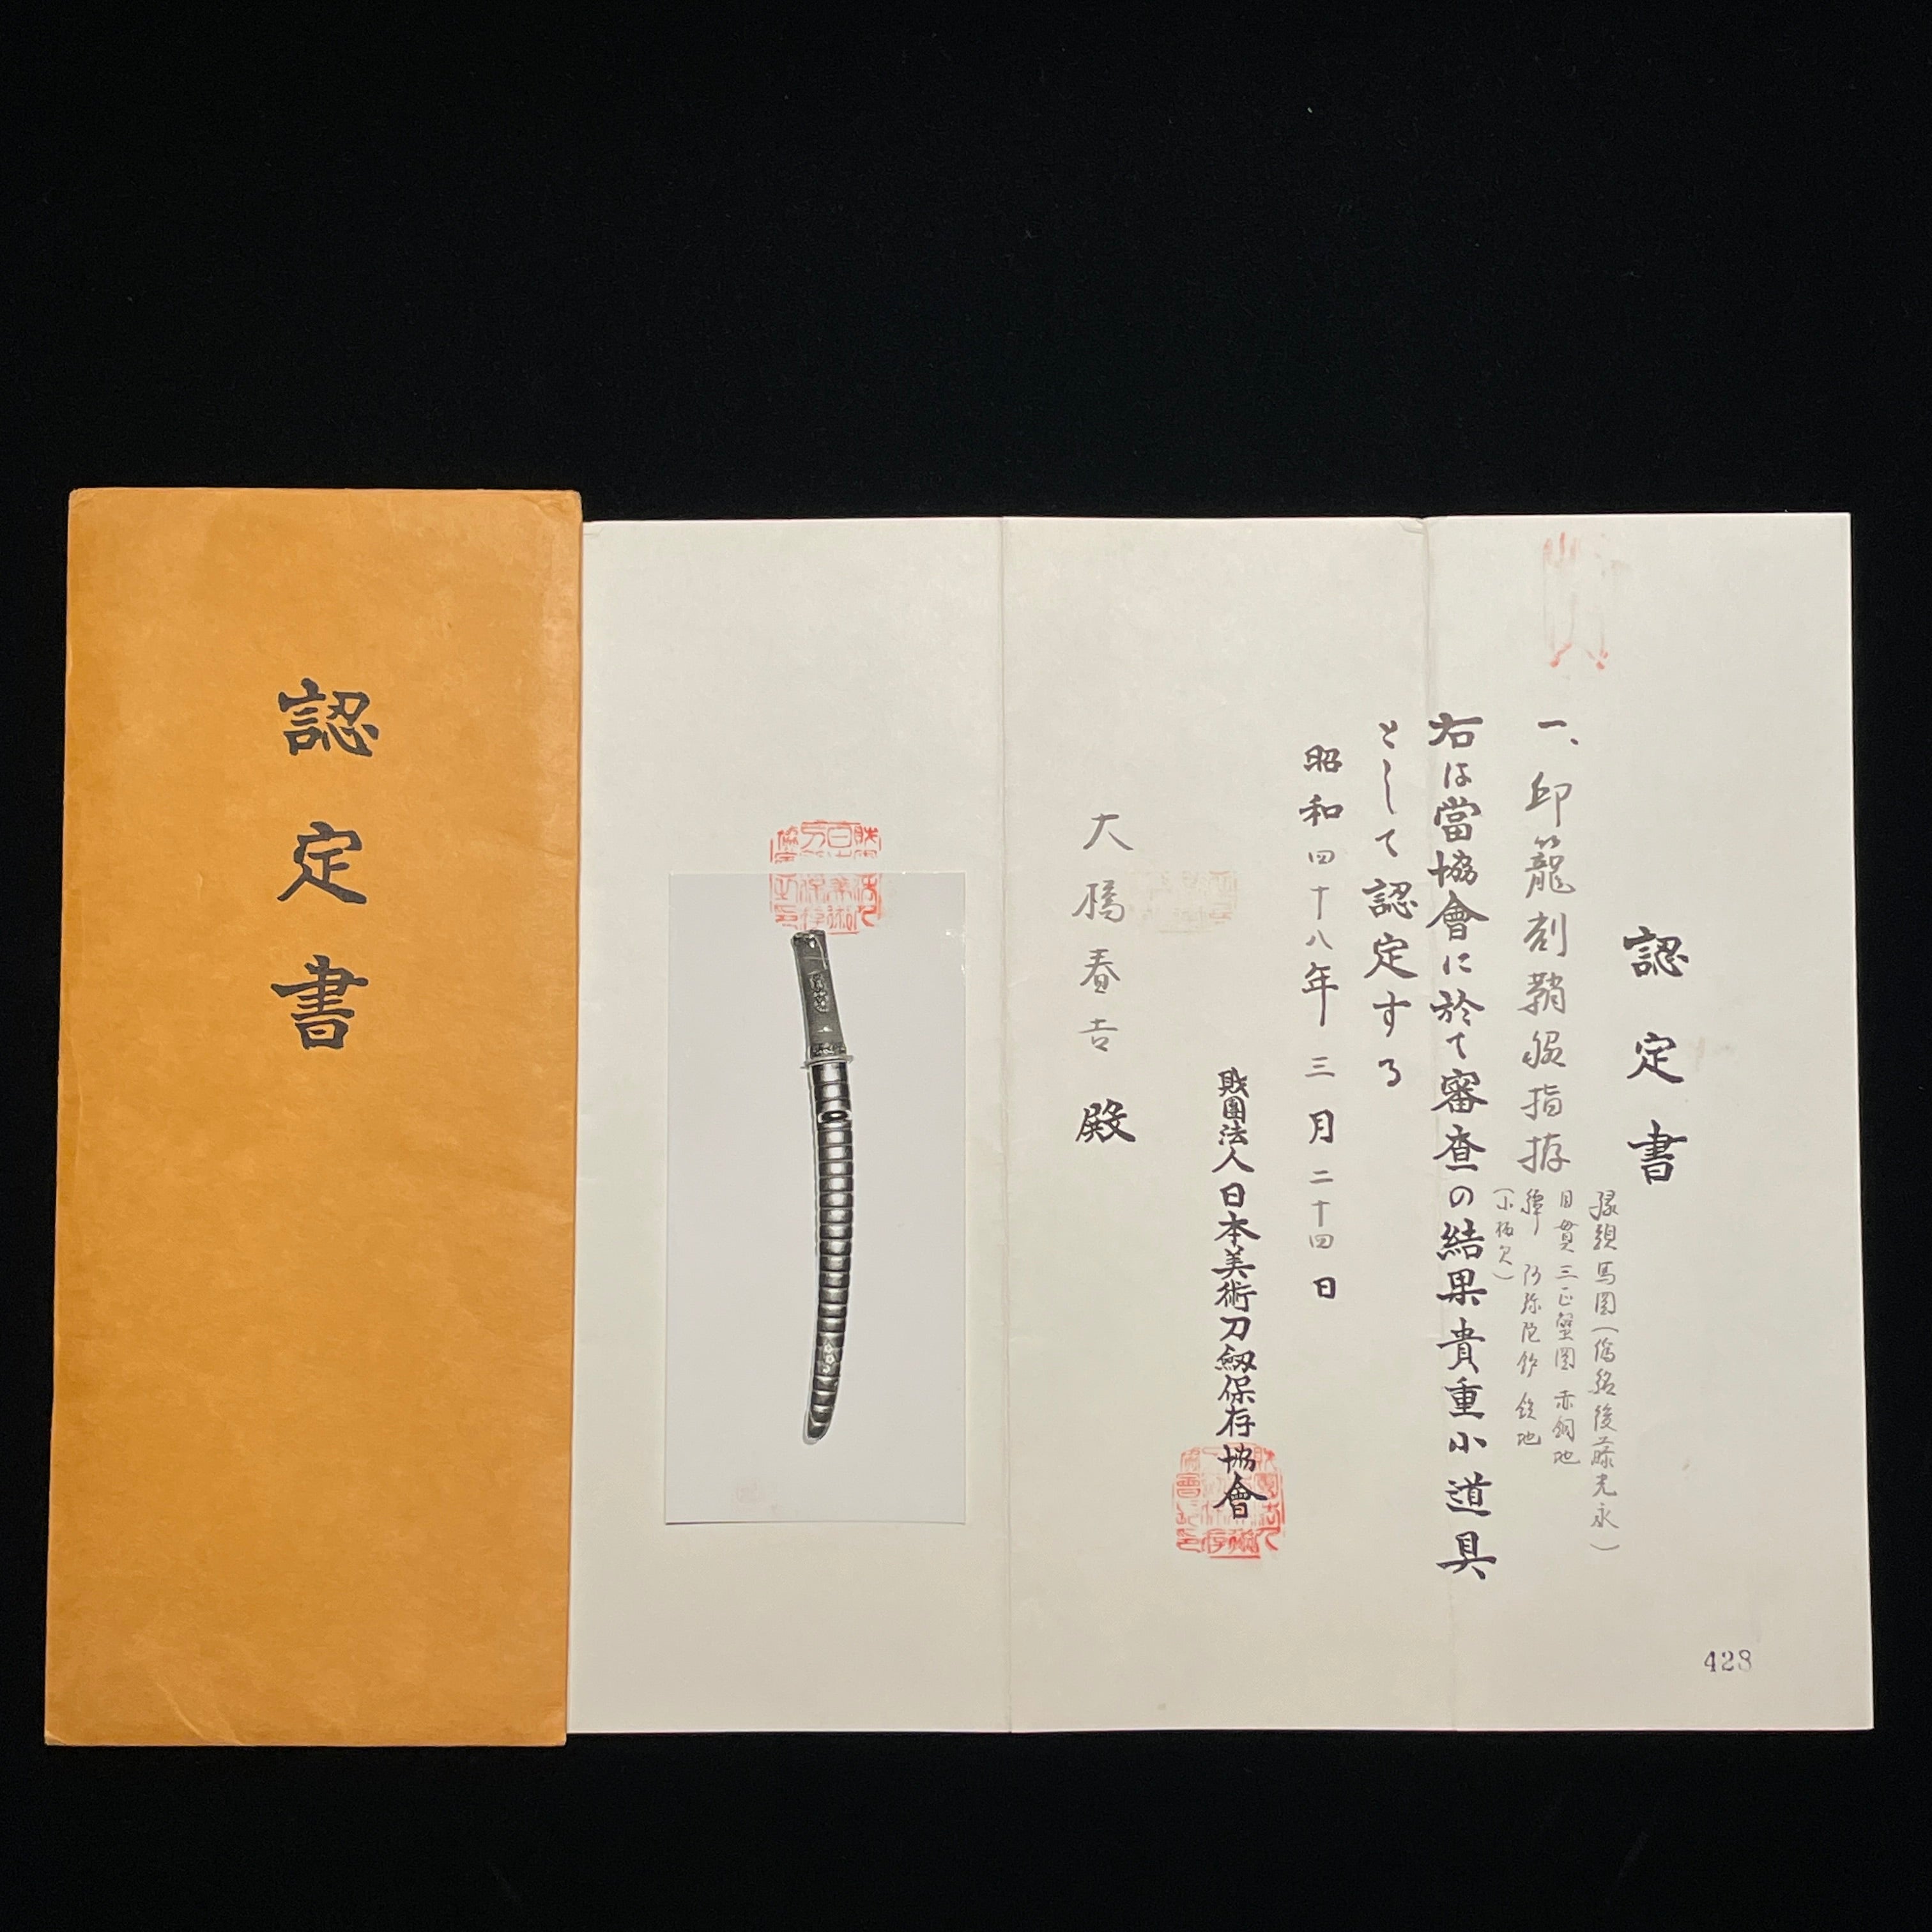 認定書
認定書
一、印籠刻鞘脇指拵
縁頭馬図(偽銘後藤光永)
目貫三疋蟹図 赤銅地
鐔 阿弥陀鑢 鉄地
(小柄欠)
右は當協會に於て審査の結果貴重小道具
として認定する
昭和四十八年三月二十四日
財團法人日本美術刀剱保存協會
大橋春吉殿
428